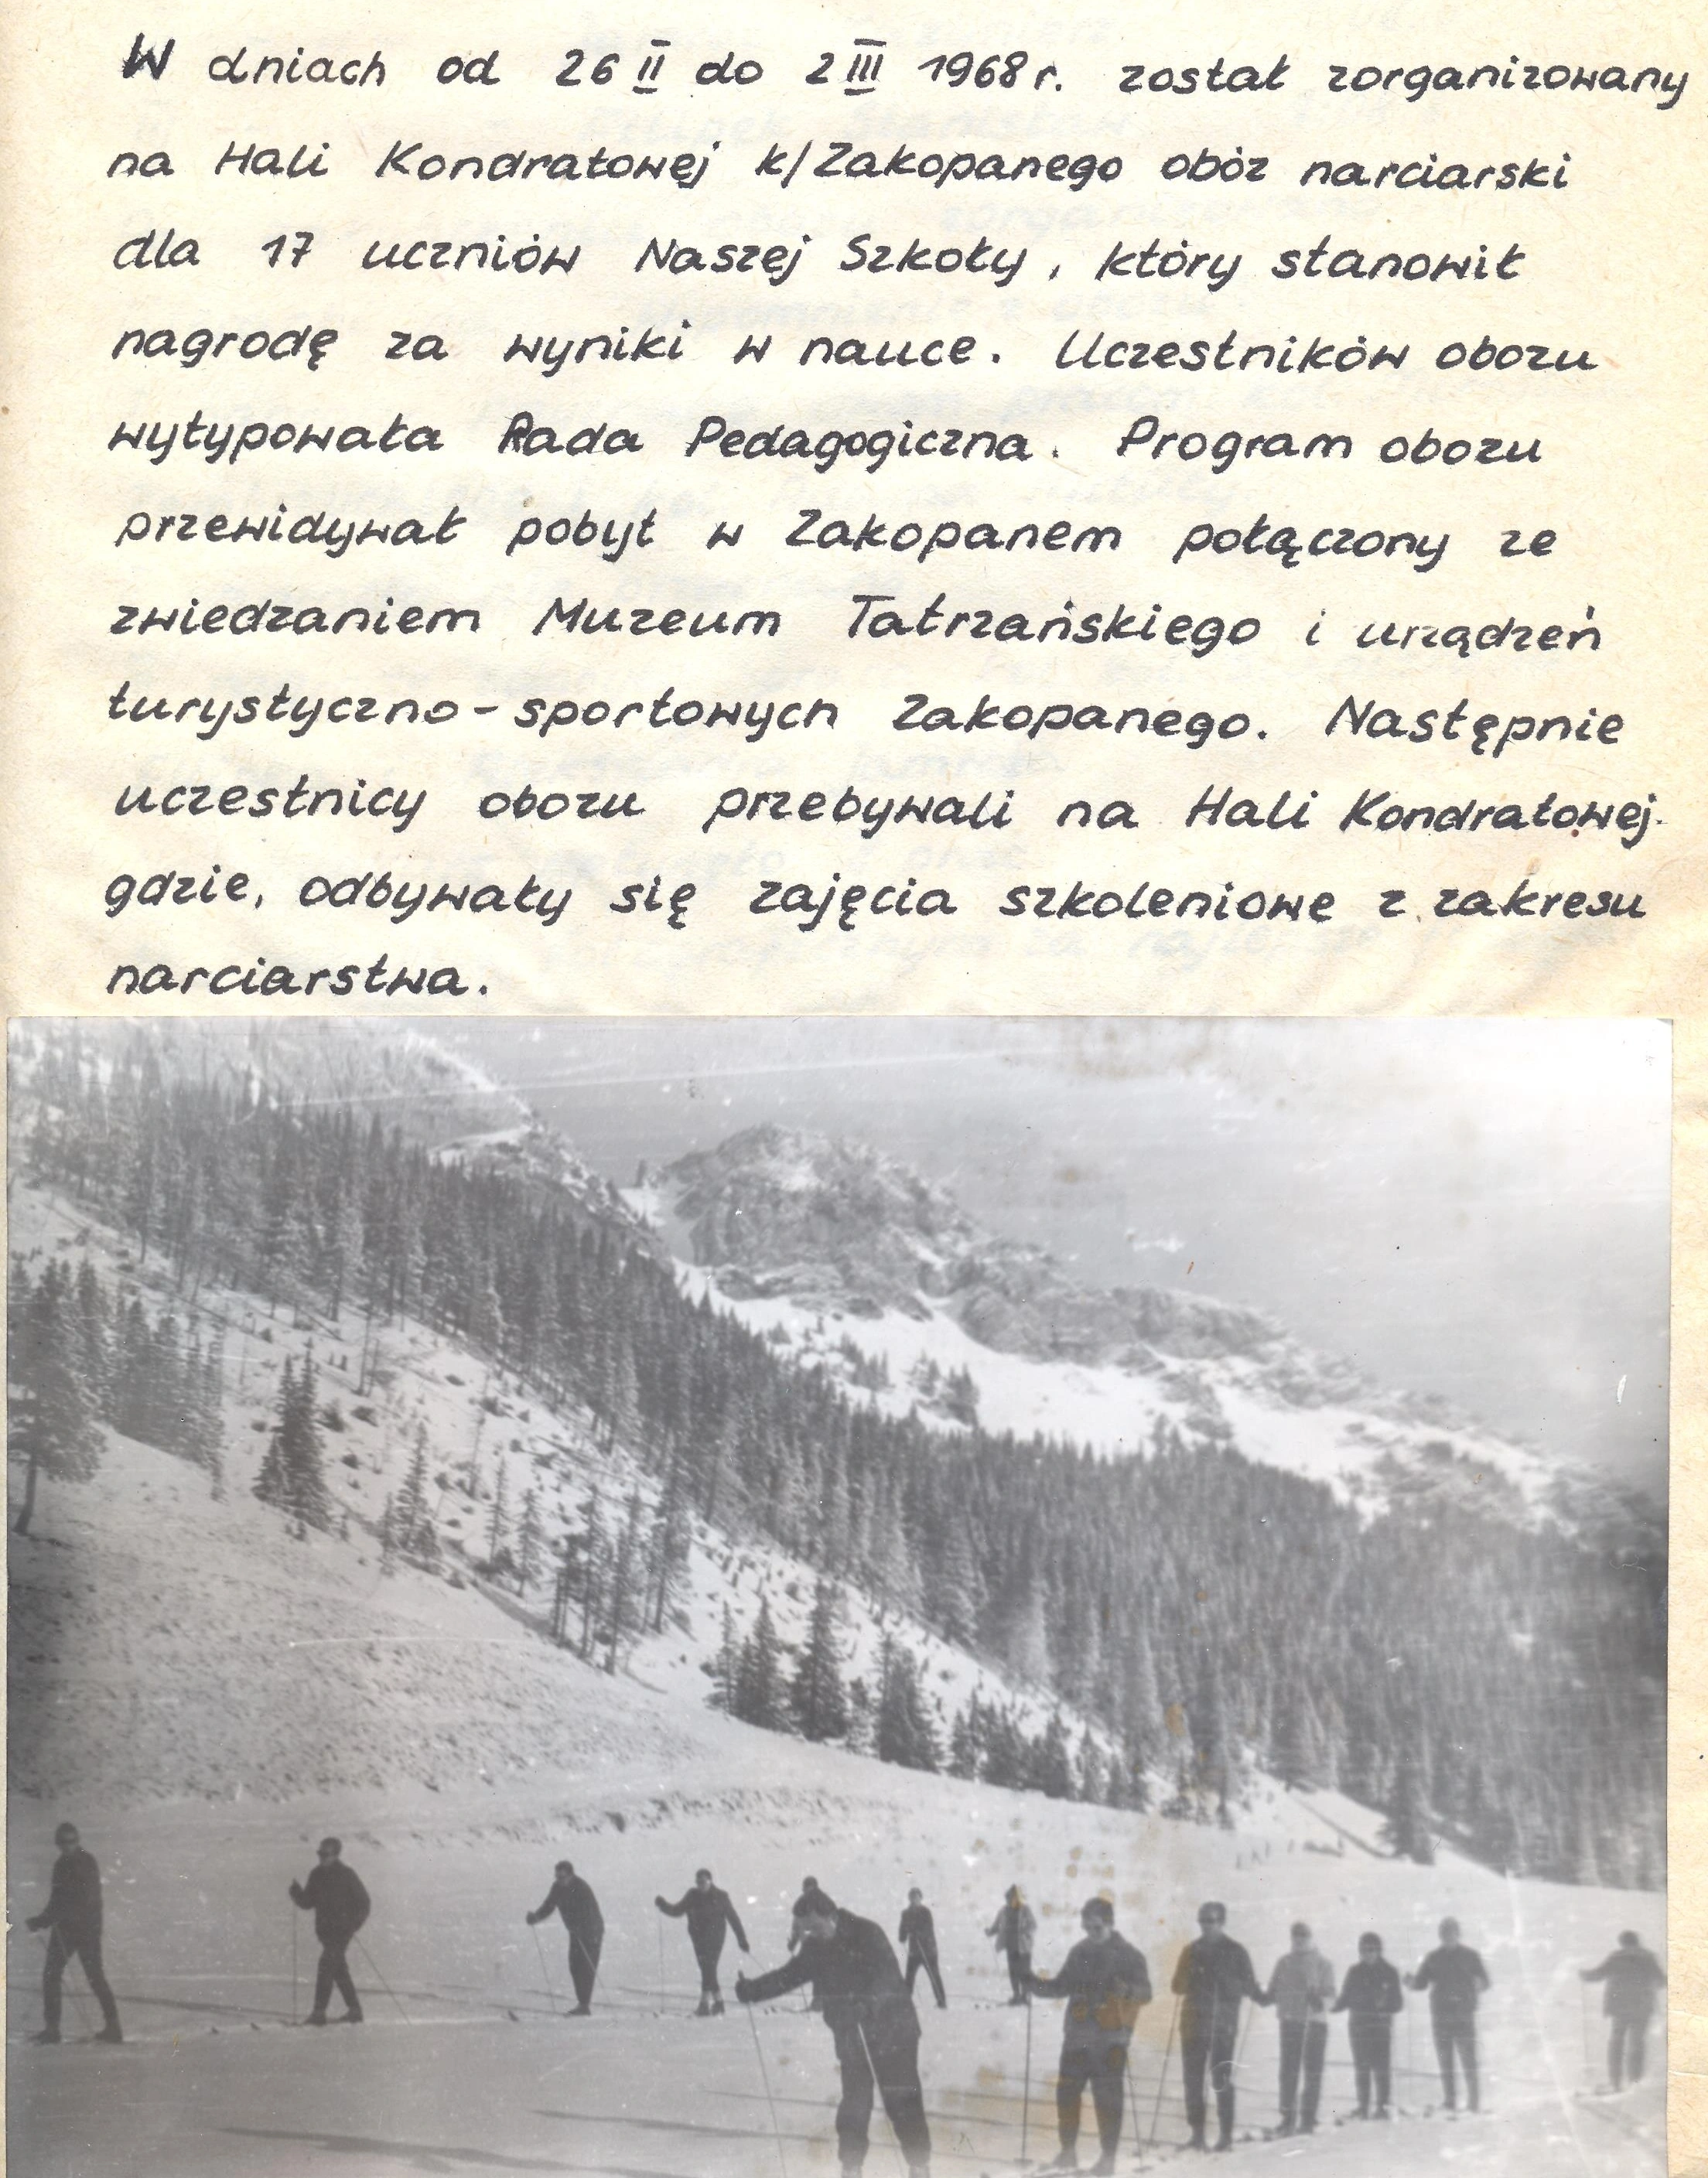 W dniach od 26 II do 2 III 1968 r. został zorganizowany
na Hali Kondratowej k/Zakopanego obóz narciarski
dla 17 uczniów Naszej Szkoły, który stanowił
nagrodę za wyniki w nauce. Uczestników obozu
wytypowała Rada Pedagogiczna. Program obozu
przewidywał pobyt w Zakopanem połączony ze
zwiedzaniem Muzeum Tatrzańskiego i urządzeń
turystyczno-sportowych Zakopanego. Następnie
uczestnicy obozu przebywali na Hali Kondratowej
gdzie, odbywały się zajęcia szkoleniowe z zakresu
narciarstwa.